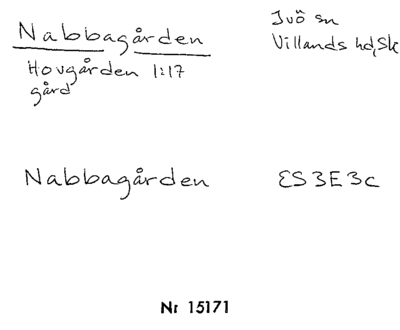 Nabbagården
Ivö sn
Villands hd, Sk
Hovgården 1:17
gård
Nabbagården
ES3E3c
Nr 15171